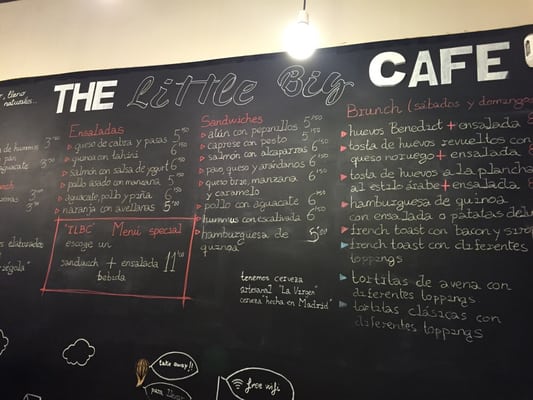 THE Little Big CAFE
naturales...
Ensaladas
queso de cabra y pasas 5'50
quinoa con tahini 6
salmón con salsa de yogurt 6
pollo asado con manzana 5
aguacate, pollo y piña 6
naranja con avellanas 5
"TLBC" Menú special
escoge un
sandwich + ensalada 11
bebida
Sandwiches
atún con pepinillos 5
caprese con pesto 5
salmón con alcaparras 6
pavo, queso y arándanos 6
queso brie, manzana 6
y caramelo
pollo con aguacate 6
hummus con escalivada 6
hamburguesa de
quinoa
tenemos cerveza
artesanal "La Virgen"
cerveza "hecha en Madrid"
Brunch (sábados y domingos
huevos Benedict + ensalada
tosta de huevos revueltos con
queso noruego + ensalada
tosta de huevos a la plancha
al estilo árabe + ensalada
hamburguesa de quinoa
con ensalada o patatas
french toast con bacon y
french toast con diferentes
toppings
tortilas de avena con
diferentes toppings
tortitas clásicas con
diferentes toppings
de hummus
pan
aguacate
elaborados
take away!!
para
free wifi